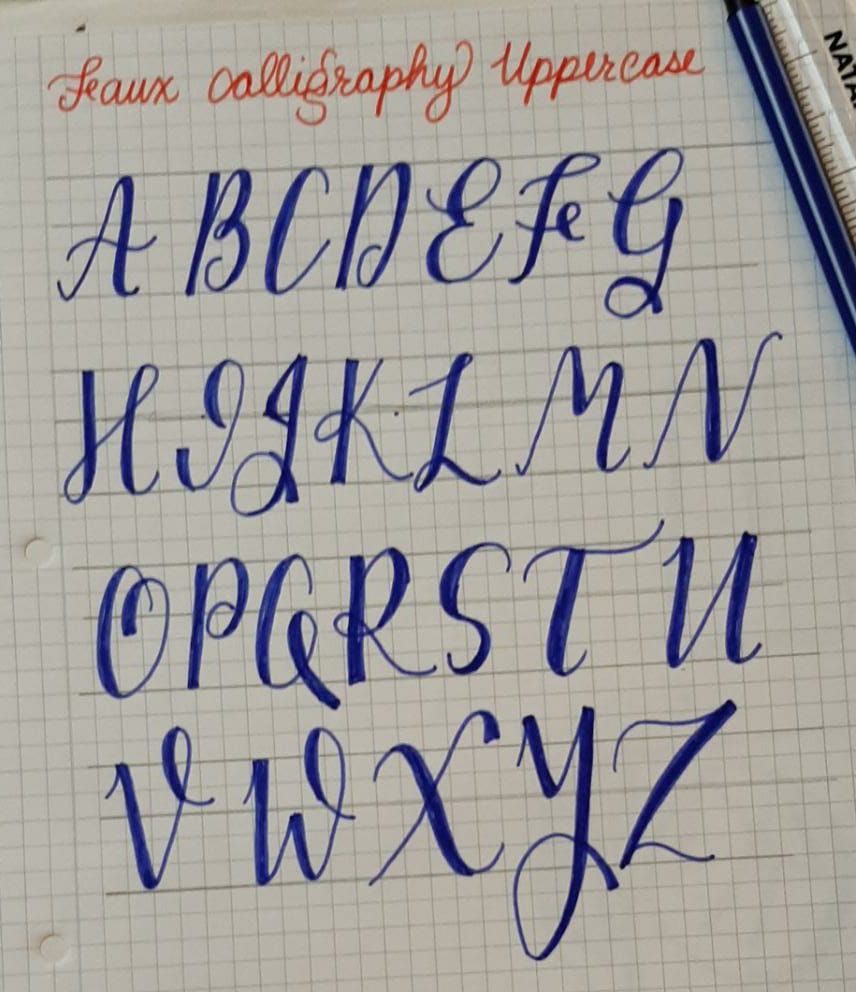 Feaux Calligraphy Uppercase
A B C D E Fe G
H I J K L M N
O P Q R S T U
V W X Y Z